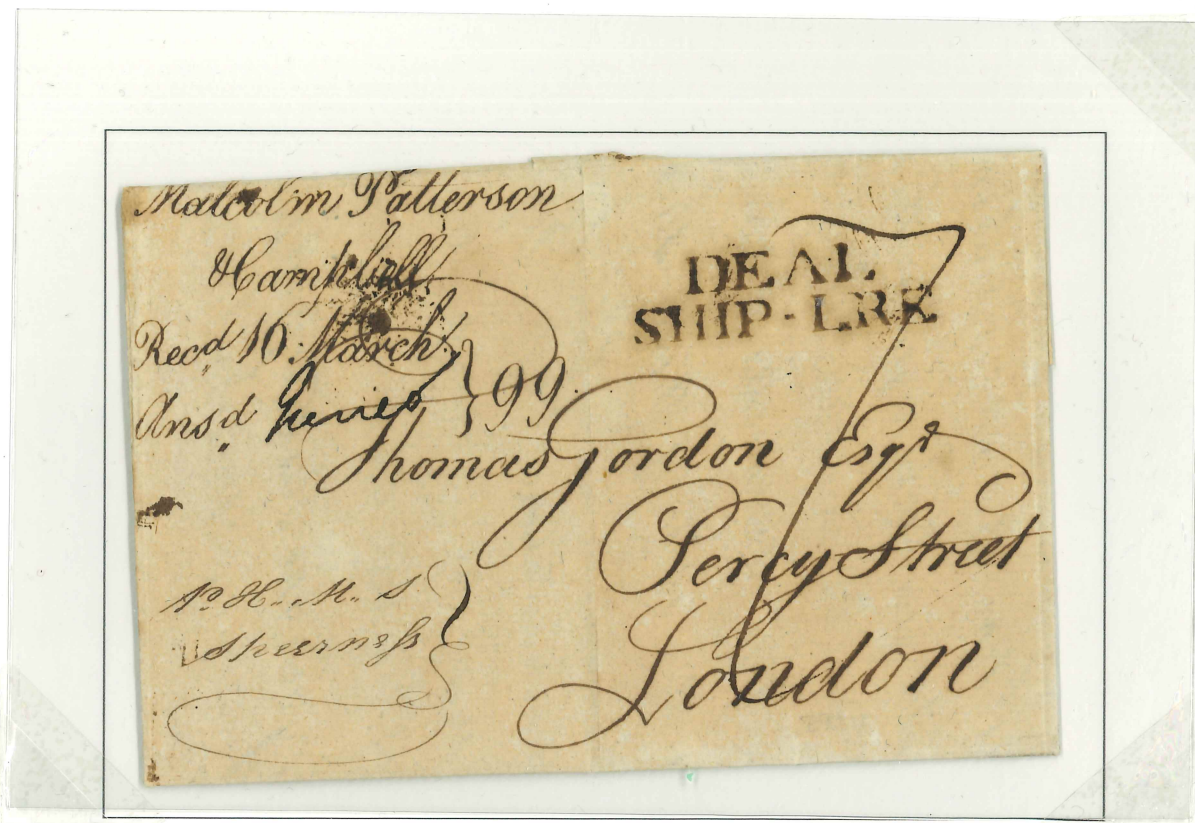 Malcolm Patterson
& Campbell
Recd 16 March
Ansd 99
DEAL
SHIP-LRE
7
Thomas Gordon Esqr
Percy Street
London
H. M. S.
Sheerness